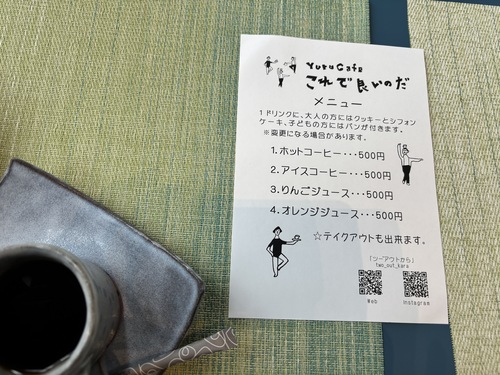 Yuru Cafe
これで良いのだ
メニュー
1ドリンクに、大人の方にはクッキーとシフォン
ケーキ、子どもの方にはパンが付きます。
※変更になる場合があります。
1. ホットコーヒー・・・500円
2. アイスコーヒー・・・500円
3. りんごジュース・・・500円
4. オレンジジュース・・・500円
☆テイクアウトも出来ます。
「ツーアウトから」
two_out_kara
Web
Instagram